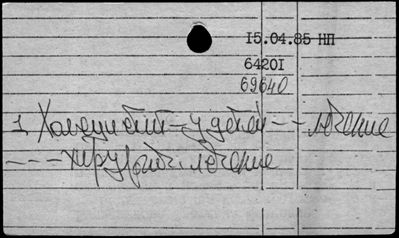 15.04.85 НП
64201
69640
1 Холецистит - у детей - - лечение
- - - хирургич. лечение